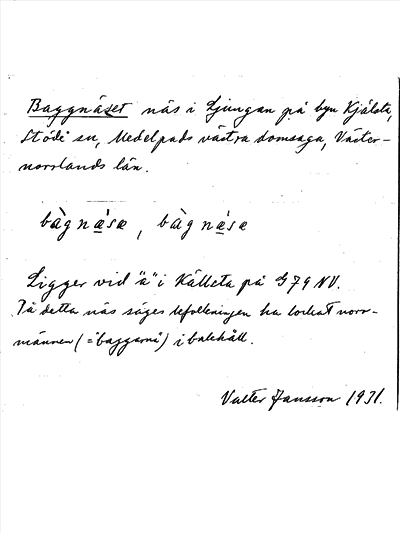 Baggnäset näs i Ljungan på byn Kjälsta,
Stöde sn, Medelpads västra domsaga, Väster-
norrlands län.
bàgnǽsæ, bàgnǽsæ
Ligger vid "ä" i Källsta på G79 NV.
På detta näs säges befolkningen ha lockat norr-
männen (="baggarna") i bakhåll.
Valter Jansson 1931.